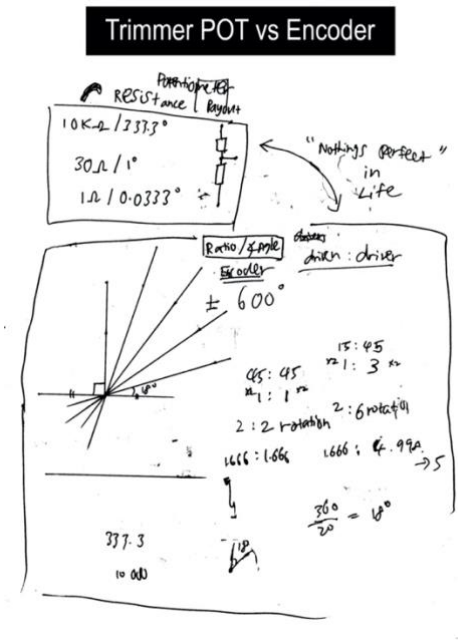 Trimmer POT vs Encoder
Potentiometer
Resistance Payout
10KΩ / 333.3°
30Ω / 1°
1Ω / 0.0333°
"Nothings perfect"
in
Life
Ratio / ∡Angle
Encoder
driven : driver
± 600°
18°
45 : 45
x2 1 : 1 x2
2 : 2 rotation
1.666 : 1.666
15 : 45
x2 1 : 3 x2
2 : 6 rotation
1.666 : 4.998
→ 5
360/20 = 18°
18
337.3